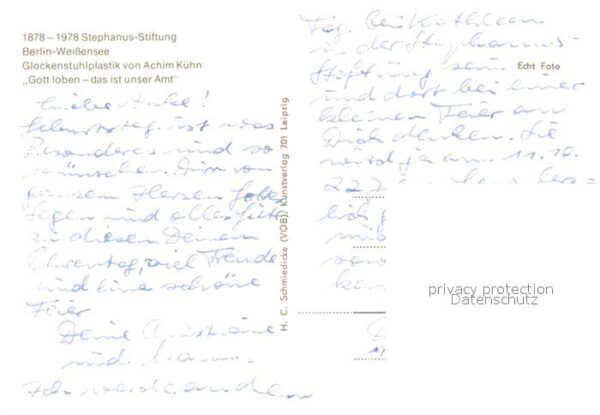 1878 – 1978 Stephanus-Stiftung
Berlin-Weißensee
Glockenstuhlplastik von Achim Kühn
„Gott loben – das ist unser Amt"
Liebe Anke!
Geburtstag ist was
Besonderes und so
wünschen Dir von
ganzem Herzen Gottes
Segen und alles Gute
zu diesen Deinem
Ehrentag, viel Freude
und eine schöne
Feier
Deine
und
Ich werde an dem
H. C. Schmiedicke (VOB) Kunstverlag 701 Leipzig
Tag bei Kathleen
in der Stephanus-
Stiftung sein
Echt Foto
und dort bei einer
kleinen Feier an
Dich denken. Sie
wird ja am 11.10.
privacy protection
Datenschutz